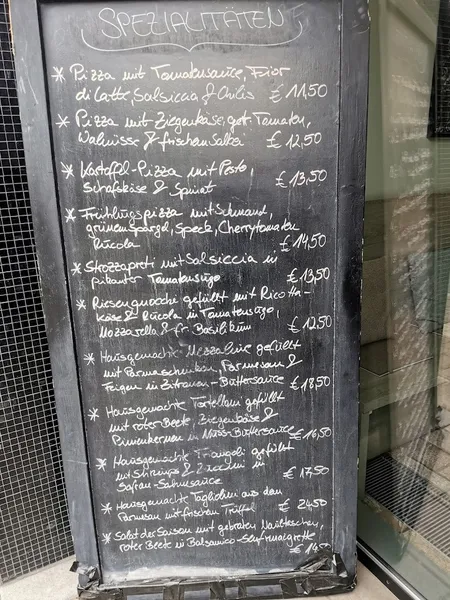 SPEZIALITÄTEN
* Pizza mit Tomatensauce, Fior
di Latte, Salsiccia & Chilis € 11,50
* Pizza mit Ziegenkäse, getr. Tomaten,
Walnüsse & frischem Salbei € 12,50
* Kartoffel-Pizza mit Pesto,
Schafskäse & Spinat € 13,50
* Frühlingspizza mit Schmand,
grünem Spargel, Speck, Cherrytomaten
Rucola € 14,50
* Strozzapreti mit Salsiccia in
pikanter Tomatensugo € 13,50
* Riesengnocchi gefüllt mit Ricotta-
käse & Rucola in Tomatensugo,
Mozzarella & fr. Basilikum € 12,50
* Hausgemachte Mezzalune gefüllt
mit Parmaschinken, Parmesan &
Feigen in Zitronen-Buttersauce € 18,50
* Hausgemachte Tortelloni gefüllt
mit roter Beete, Ziegenkäse &
Pinienkernen in Nuss-Buttersauce € 16,50
* Hausgemachte Triangoli gefüllt
mit Shrimps & Zucchini in
Safran-Sahnesauce € 17,50
* Hausgemachte Tagliolini aus dem
Parmesan mit frischem Trüffel € 24,50
* Salat der Saison mit gebraten
roter Beete in Balsamico-Senfvinaigrette